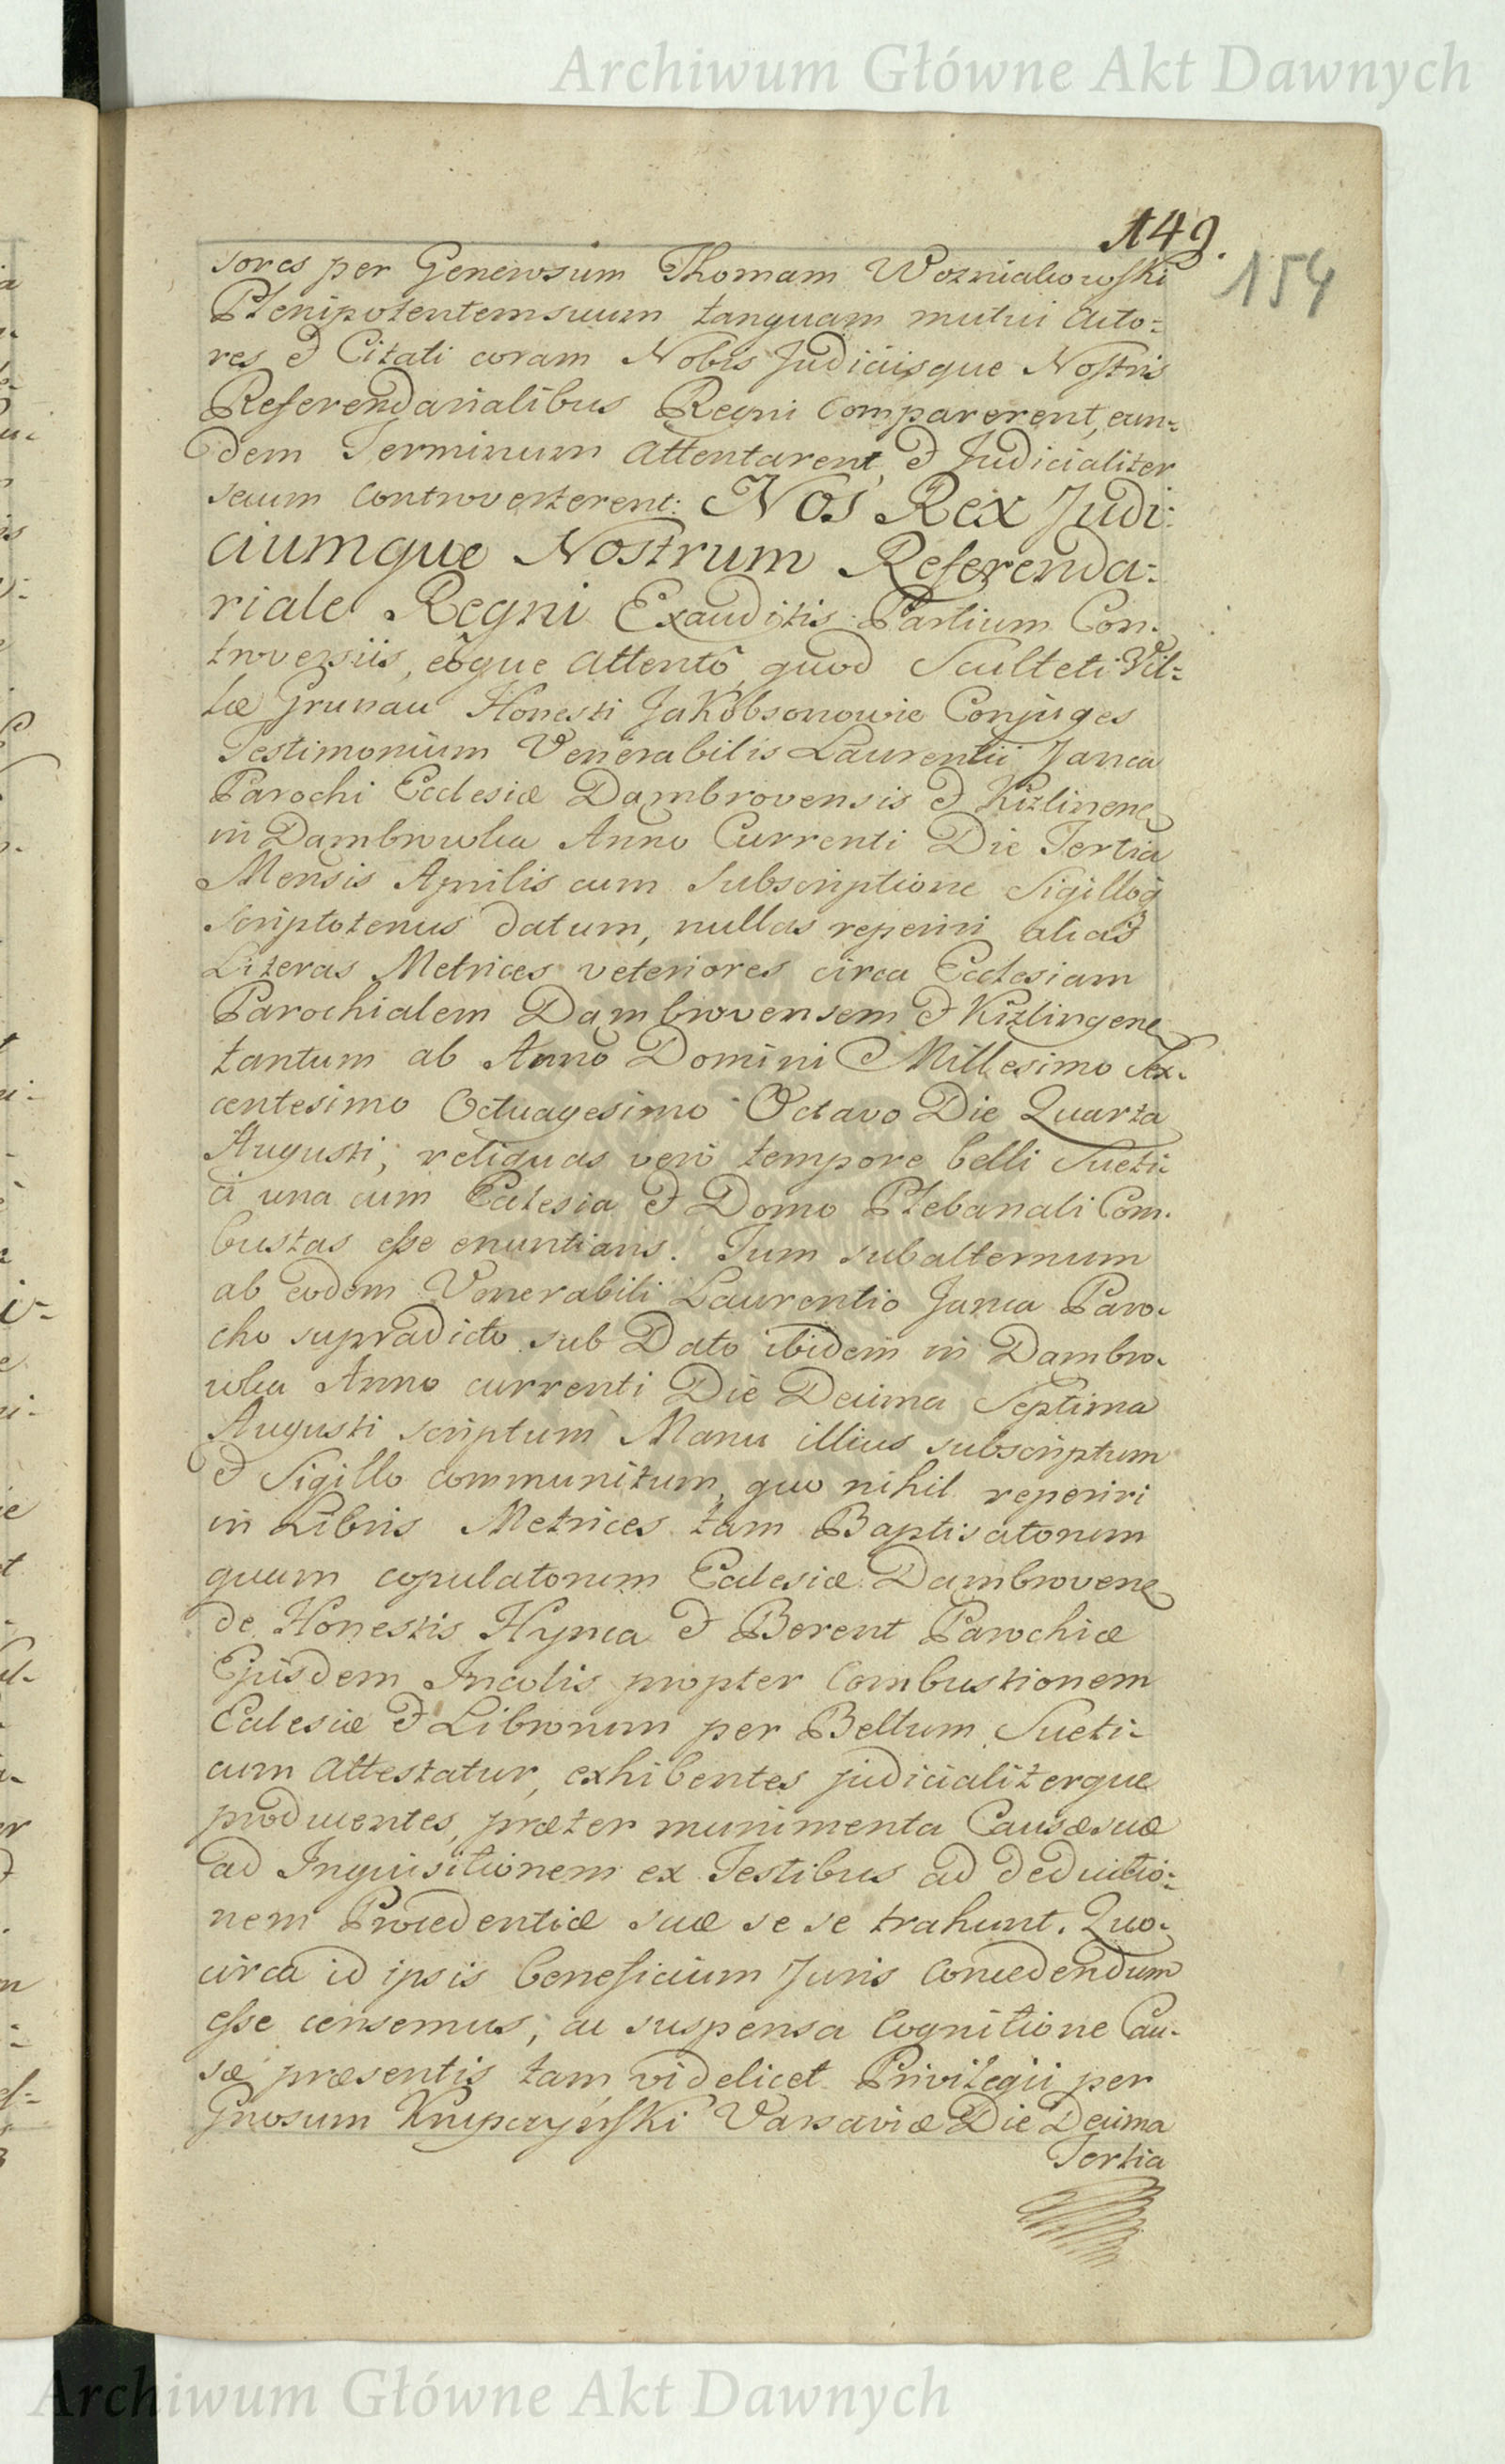 Archiwum Główne Akt Dawnych
149.
154
sores per Generosum Thomam Wozniakowski
Plenipotentem suum tanquam mutui Acto=
res & Citati coram Nobis Judiciisque Nostris
Referendarialibus Regni Comparerent, eun=
dem Terminum attentarent, & Judicialiter
secum Controverterent: Nos Rex Judi=
ciumque Nostrum Referenda=
riale Regni Exauditis Partium Con-
troversiis, eôque attentô, quod Sculteti Vil=
læ Grunau Honesti Jakobsonowie Conjuges
Testimonium Venerabilis Laurentii Janca
Parochi Ecclesiæ Dambrovensis & Kizlinene
in Dambrowka Anno Currenti Die Tertia
Mensis Aprilis cum Subscriptione Sigilloq
scriptotenus datum, nullas reperiri alias
Literas Metrices veteriores circa Ecclesiam
Parochialem Dambrovensem & Kizlingene
tantum ab Anno Domini Millesimo Sex-
centesimo Octuagesimo Octavo Die Quarta
Augusti, reliquas verò tempore belli Sueti-
ci una cum Eclesia & Domo Plebanali Com-
bustas esse enuntians. Tum subalternum
ab eodem Venerabili Laurentio Janca Paro-
cho supradicto sub Dato ibidem in Dambro-
wka Anno currenti Die Decima Septima
Augusti scriptum Manu illius subscriptum
& Sigillo communitum, quo nihil reperiri
in Libris Metrices tam Baptisatorum
quam copulatorum Eclesiæ Dambrovene
de Honestis Hynca & Berent Parochiæ
Ejusdem Incolis propter Combustionem
Eclesiæ & Librorum per Bellum Sueti-
cum attestatur, exhibentes judicialiterque
producentes, præter munimenta Causæ suæ
ad Inquisitionem ex Testibus ad deductio=
nem Procedentiæ suæ se se trahunt. Quo-
circa id ipsis beneficium Juris Concedendum
esse censemus, ac suspensa Cognitione Cau-
sæ præsentis tam videlicet Privilegii per
Gnosum Krupczyński Varsaviæ Die Decima
Tertia
Archiwum Główne Akt Dawnych